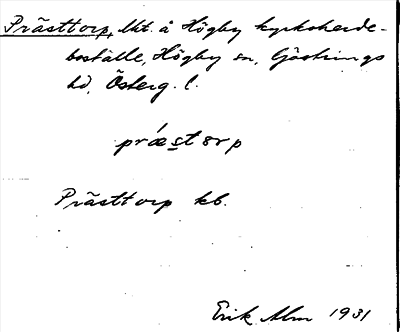 Prästtorp, lht. å Högby kyrkoherde-
boställe, Högby sn, Göstrings
hd, Österg. l.
prǽstɔrp
Prästtorp kb.
Erik Alm 1931